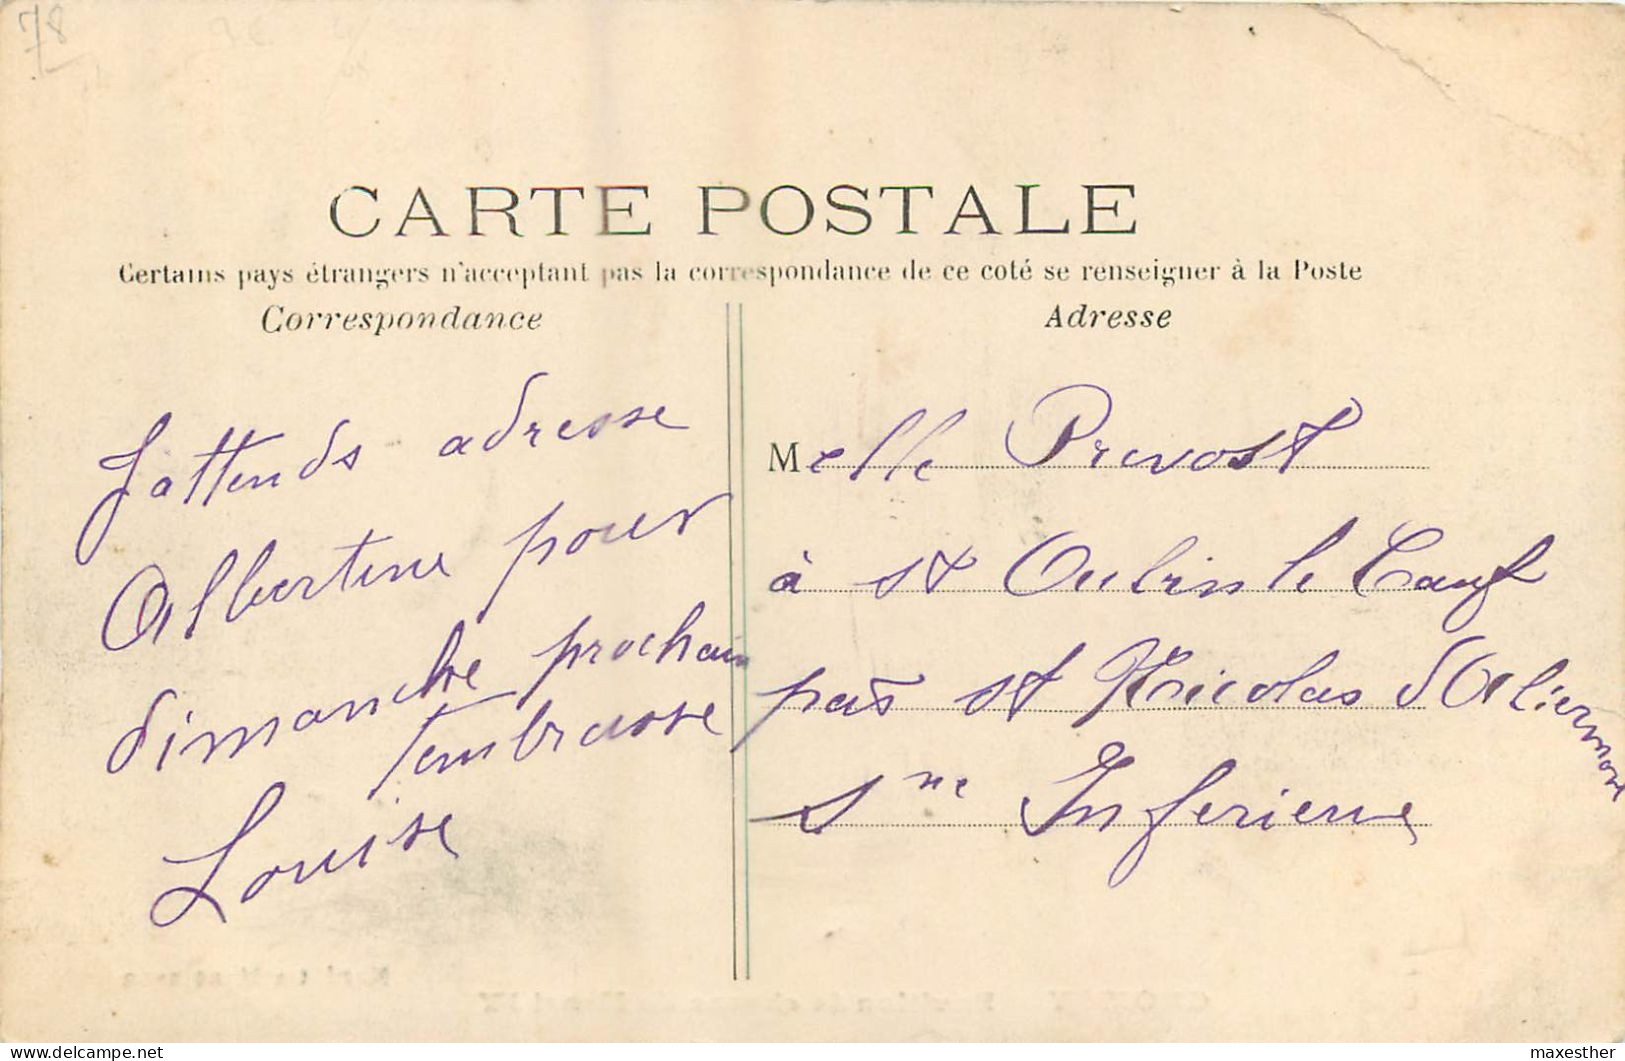 78
CARTE POSTALE
Certains pays étrangers n'acceptant pas la correspondance de ce coté se renseigner à la Poste
Correspondance
Adresse
J'attends adresse
Albertine pour
dimanche prochain
t'embrasse
Louise
Melle Prevost
à St Aubin le Cauf
par St Nicolas d'Aliermont
Sne Inferieure
delcampe.net
maxesther